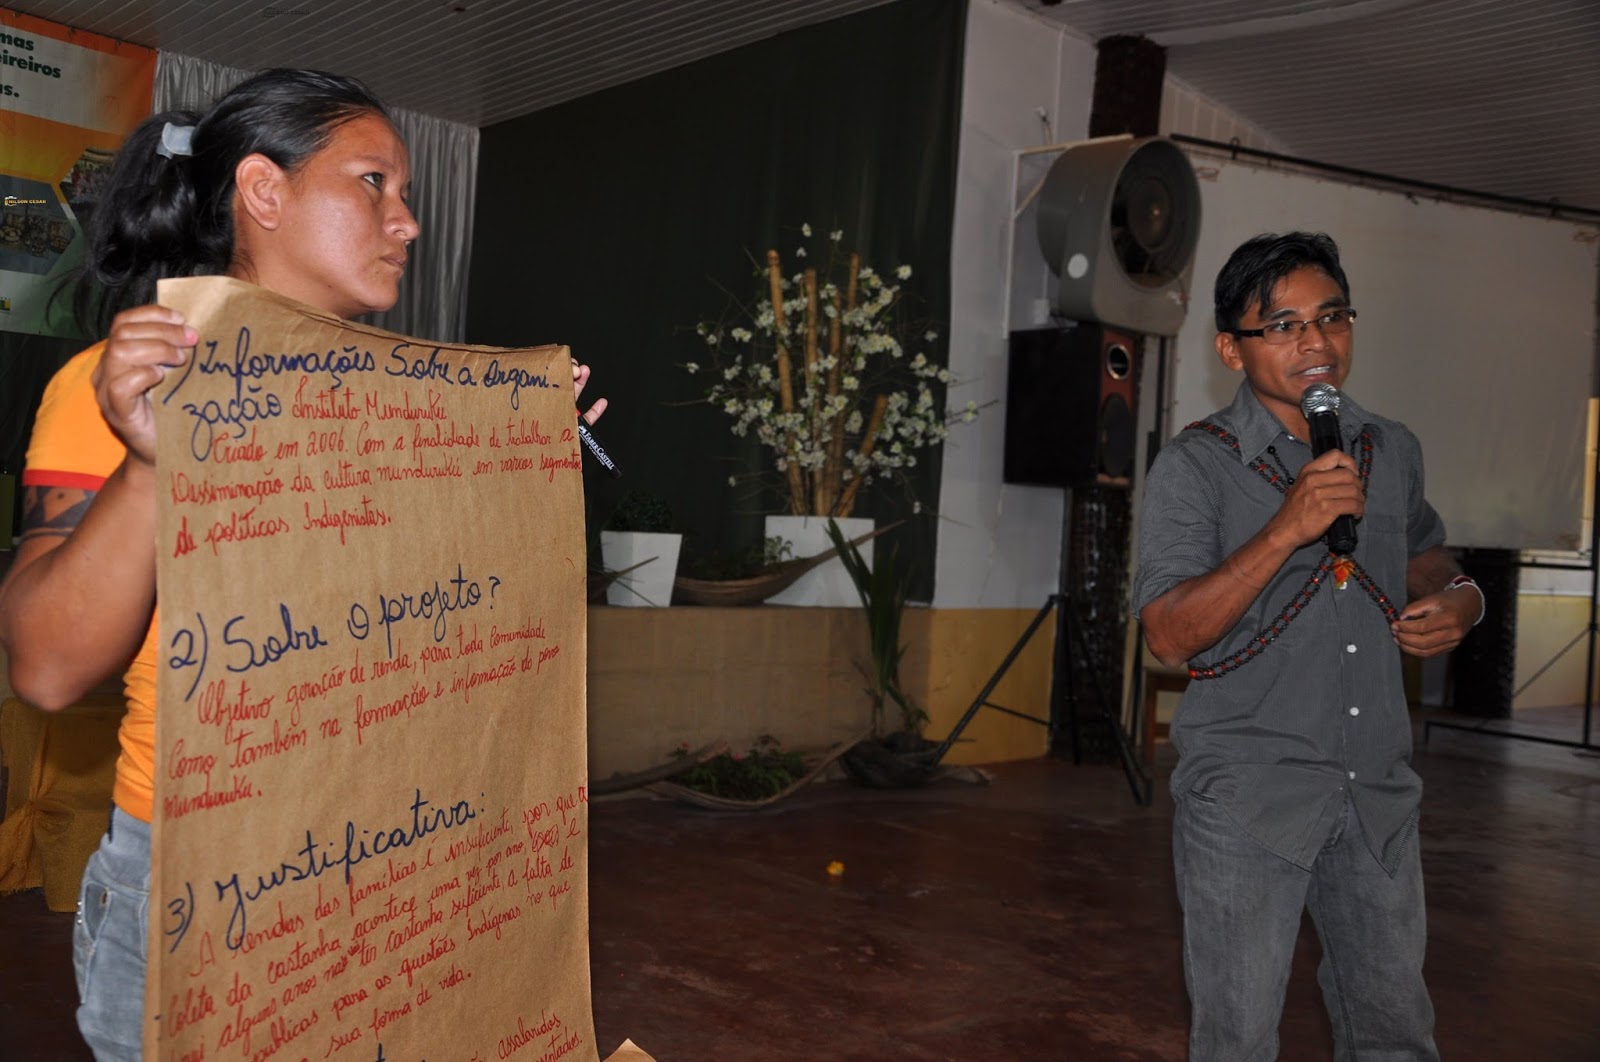 mas
eireiros
s.
NILSON CESAR
1) Informações Sobre a organi-
zação Instituto Munduruku
Criado em 2006. Com a finalidade de trabalhar a
Desseminação da cultura munduruku em varios segmentos
de políticas Indigenistas.
FABER CASTELL
2) Sobre o projeto?
Objetivo geração de renda, para toda Comunidade
Como também na formação e informação do povo
munduruku.
3) Justificativa:
A rendas das famílias é insuficiente, por que a
Coleta da castanha acontece uma vez por ano, e
alguns anos não ter castanha suficiente, a falta de
publicas para as questões Indígenas no que
sua forma de vida.
assalariados